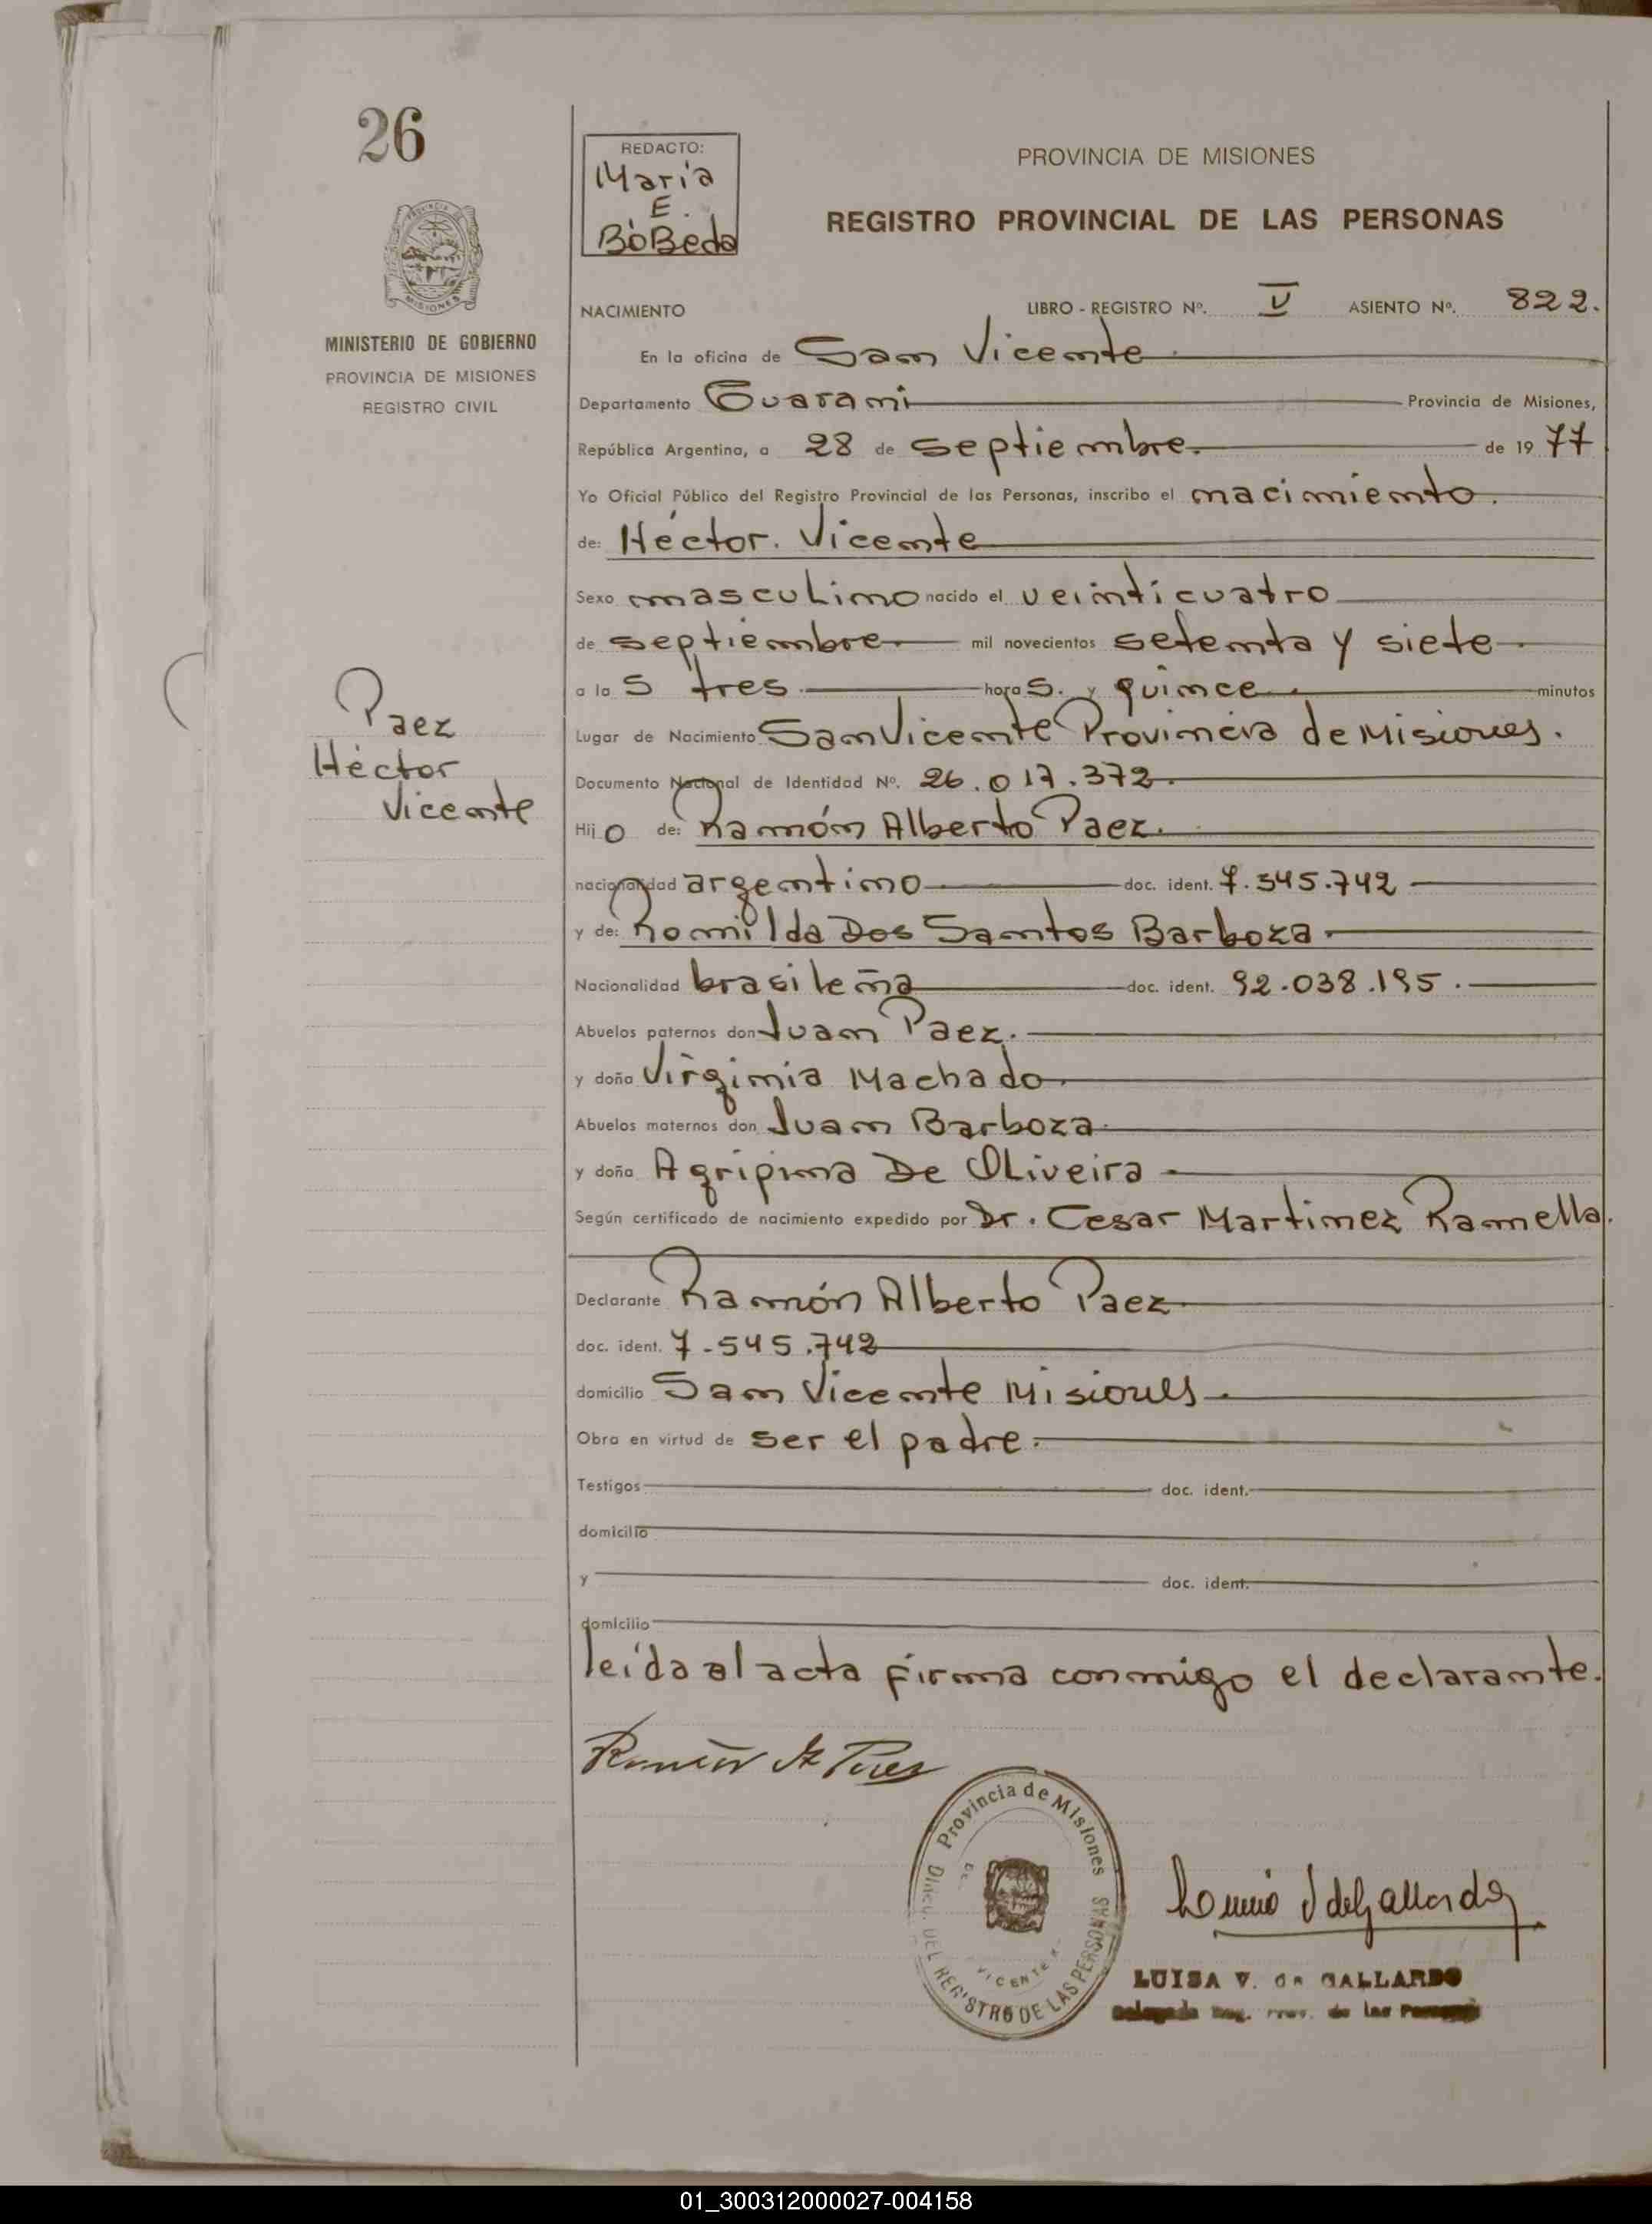 26
MINISTERIO DE GOBIERNO
PROVINCIA DE MISIONES
REGISTRO CIVIL
Paez
Héctor
Vicente
REDACTO:
Maria
E.
BoBeda
PROVINCIA DE MISIONES
REGISTRO PROVINCIAL DE LAS PERSONAS
NACIMIENTO LIBRO - REGISTRO Nº. V ASIENTO Nº. 822.
En la oficina de San Vicente
Departamento Guarani Provincia de Misiones,
República Argentina, a 28 de septiembre. de 19 77
Yo Oficial Público del Registro Provincial de las Personas, inscribo el nacimiento.
de: Héctor. Vicente
Sexo masculino nacido el veinticuatro
de septiembre. mil novecientos setenta y siete
a la s tres. hora s. y quince. minutos
Lugar de Nacimiento San Vicente Provincia de Misiones.
Documento Nacional de Identidad Nº. 26.017.372.
Hij o de: Ramón Alberto Paez.
nacionalidad argentino doc. ident. 7.545.742
y de: Romilda Dos Santos Barboza.
Nacionalidad brasileña doc. ident. 92.038.195.
Abuelos paternos don Juan Paez.
y doña Virginia Machado.
Abuelos maternos don Juan Barboza
y doña Agripina De Oliveira
Según certificado de nacimiento expedido por Dr. Cesar Martinez Ramella.
Declarante Ramón Alberto Paez
doc. ident. 7-545.742
domicilio San Vicente Misiones.
Obra en virtud de ser el padre.
Testigos doc. ident.
domicilio
y doc. ident.
domicilio
leída el acta firma conmigo el declarante.
Provincia de Misiones
DEL REGISTRO DE LAS PERSONAS
VICENTE
LUISA V. de GALLARDO
01_300312000027-004158